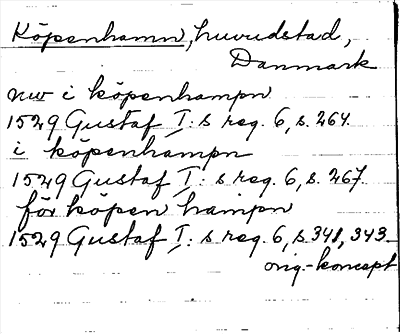 Köpenhamn, huvudstad,
Danmark
nw i köpenhampn
1529 Gustaf I:s reg. 6, s. 264.
i köpenhampn
1529 Gustaf I:s reg. 6, s. 267.
för köpen hampn
1529 Gustaf I:s reg. 6, s 341, 343
orig.-koncept